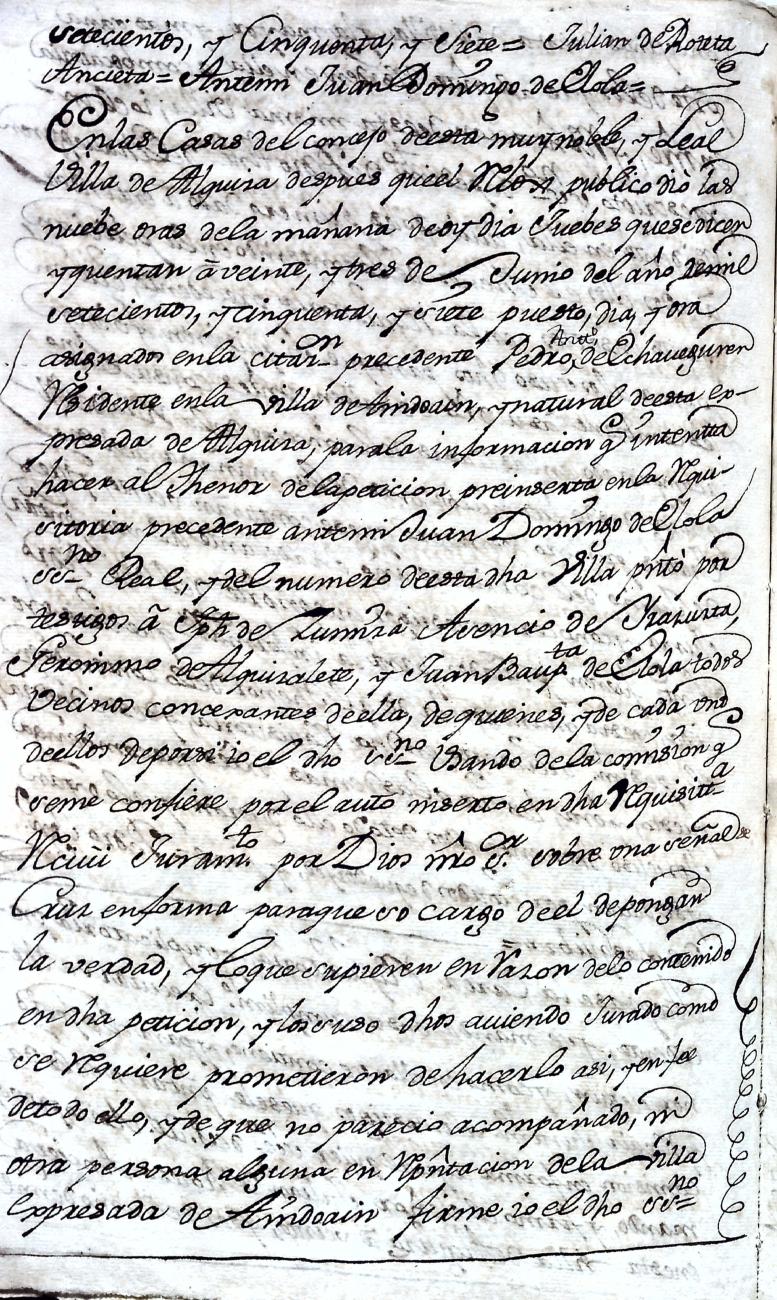 setecientos, y Cinquenta, y Siete= Julian de Roteta
Ancieta= Antemi Juan Domingo de Elola=
En las Casas del concejo de esta muy noble, y Leal
Villa de Alquiza despues que el Relox publico diò las
nuebe oras de la mañana de oy dia Juebes que se dicen
y quentan à veinte, y tres de Junio del año de mil
setecientos, y cinquenta, y siete puesto, dia, y ora
asignados en la citazn precedente Pedro Antº de Echaveguren
Residente en la villa de Amdoain, y natural de esta ex-
presada de Alquiza, para la informacion q intentta
hacer al Thenor de la peticion preinserta en la Requi-
sitoria precedente antemi Juan Domingo de Elola
ssno Real, y del numero de esta dha Villa pntò por
testigos à Jph de Zumeza Asencio de Irazusta,
Geronimo de Alquizalete, y Juan Baupta de Elola todos
vecinos concejantes de ella, de quienes, y de cada uno
de ellos de por si io el dho ssno Usando de la comision q
se me confiere por el auto inserto en dha Requisitta
Reciui Juramto por Dios nro Sr sobre una señal de
Cruz en forma para que so cargo de el depongan
la verdad, y lo que supieren en Razon de lo contenido
en dha peticion, y los suso dhos auiendo Jurado como
se Requiere prometieron de hacerlo asi, y en fee
de todo ello, y de que no parecio acompañado, ni
otra persona alguna en Rpntacion de la villa
Expresada de Amdoain firme io el dho ssno=